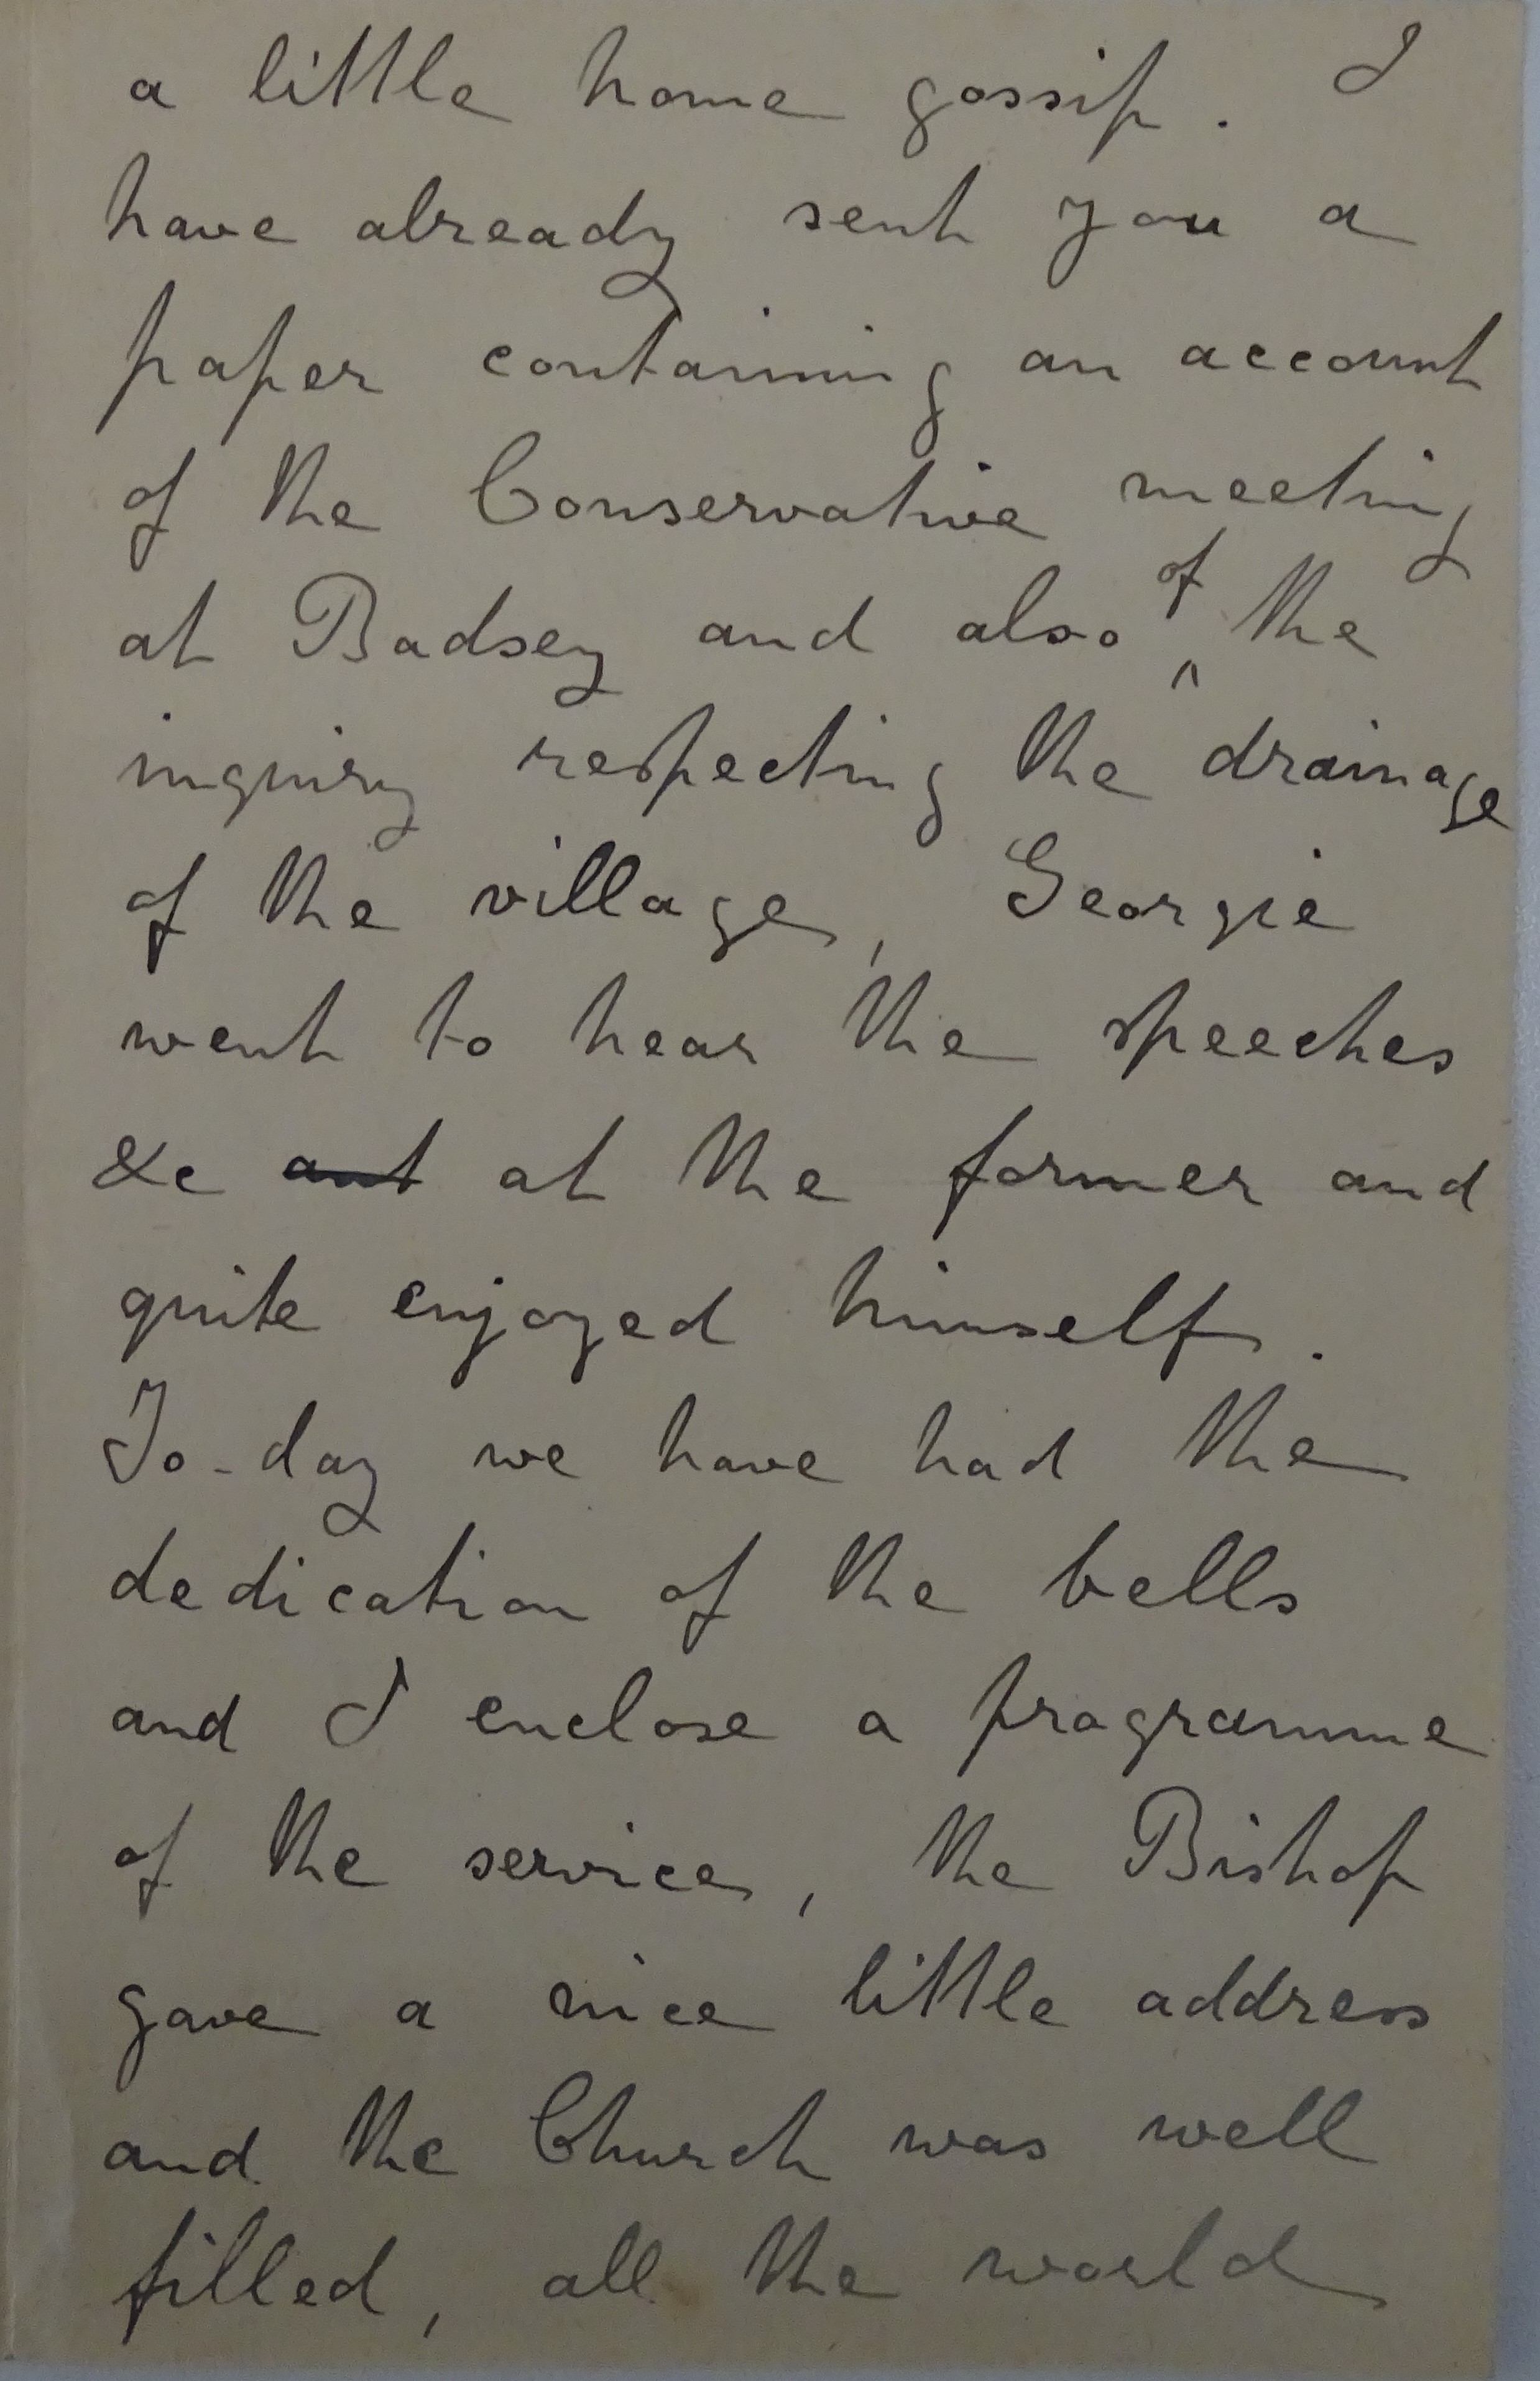 a little home gossip. I
have already sent you a
paper containing an account
of the Conservative meeting
at Badsey and also of the
inquiry respecting the drainage
of the village, Georgie
went to hear the speeches
&c aut at the former and
quite enjoyed himself.
To-day we have had the
dedication of the bells
and I enclose a programme
of the service, the Bishop
gave a nice little address
and the Church was well
filled, all the world